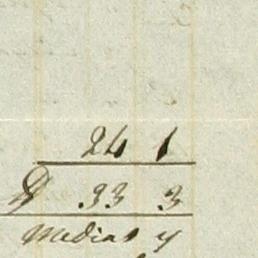 24 1
33 3
Medias y